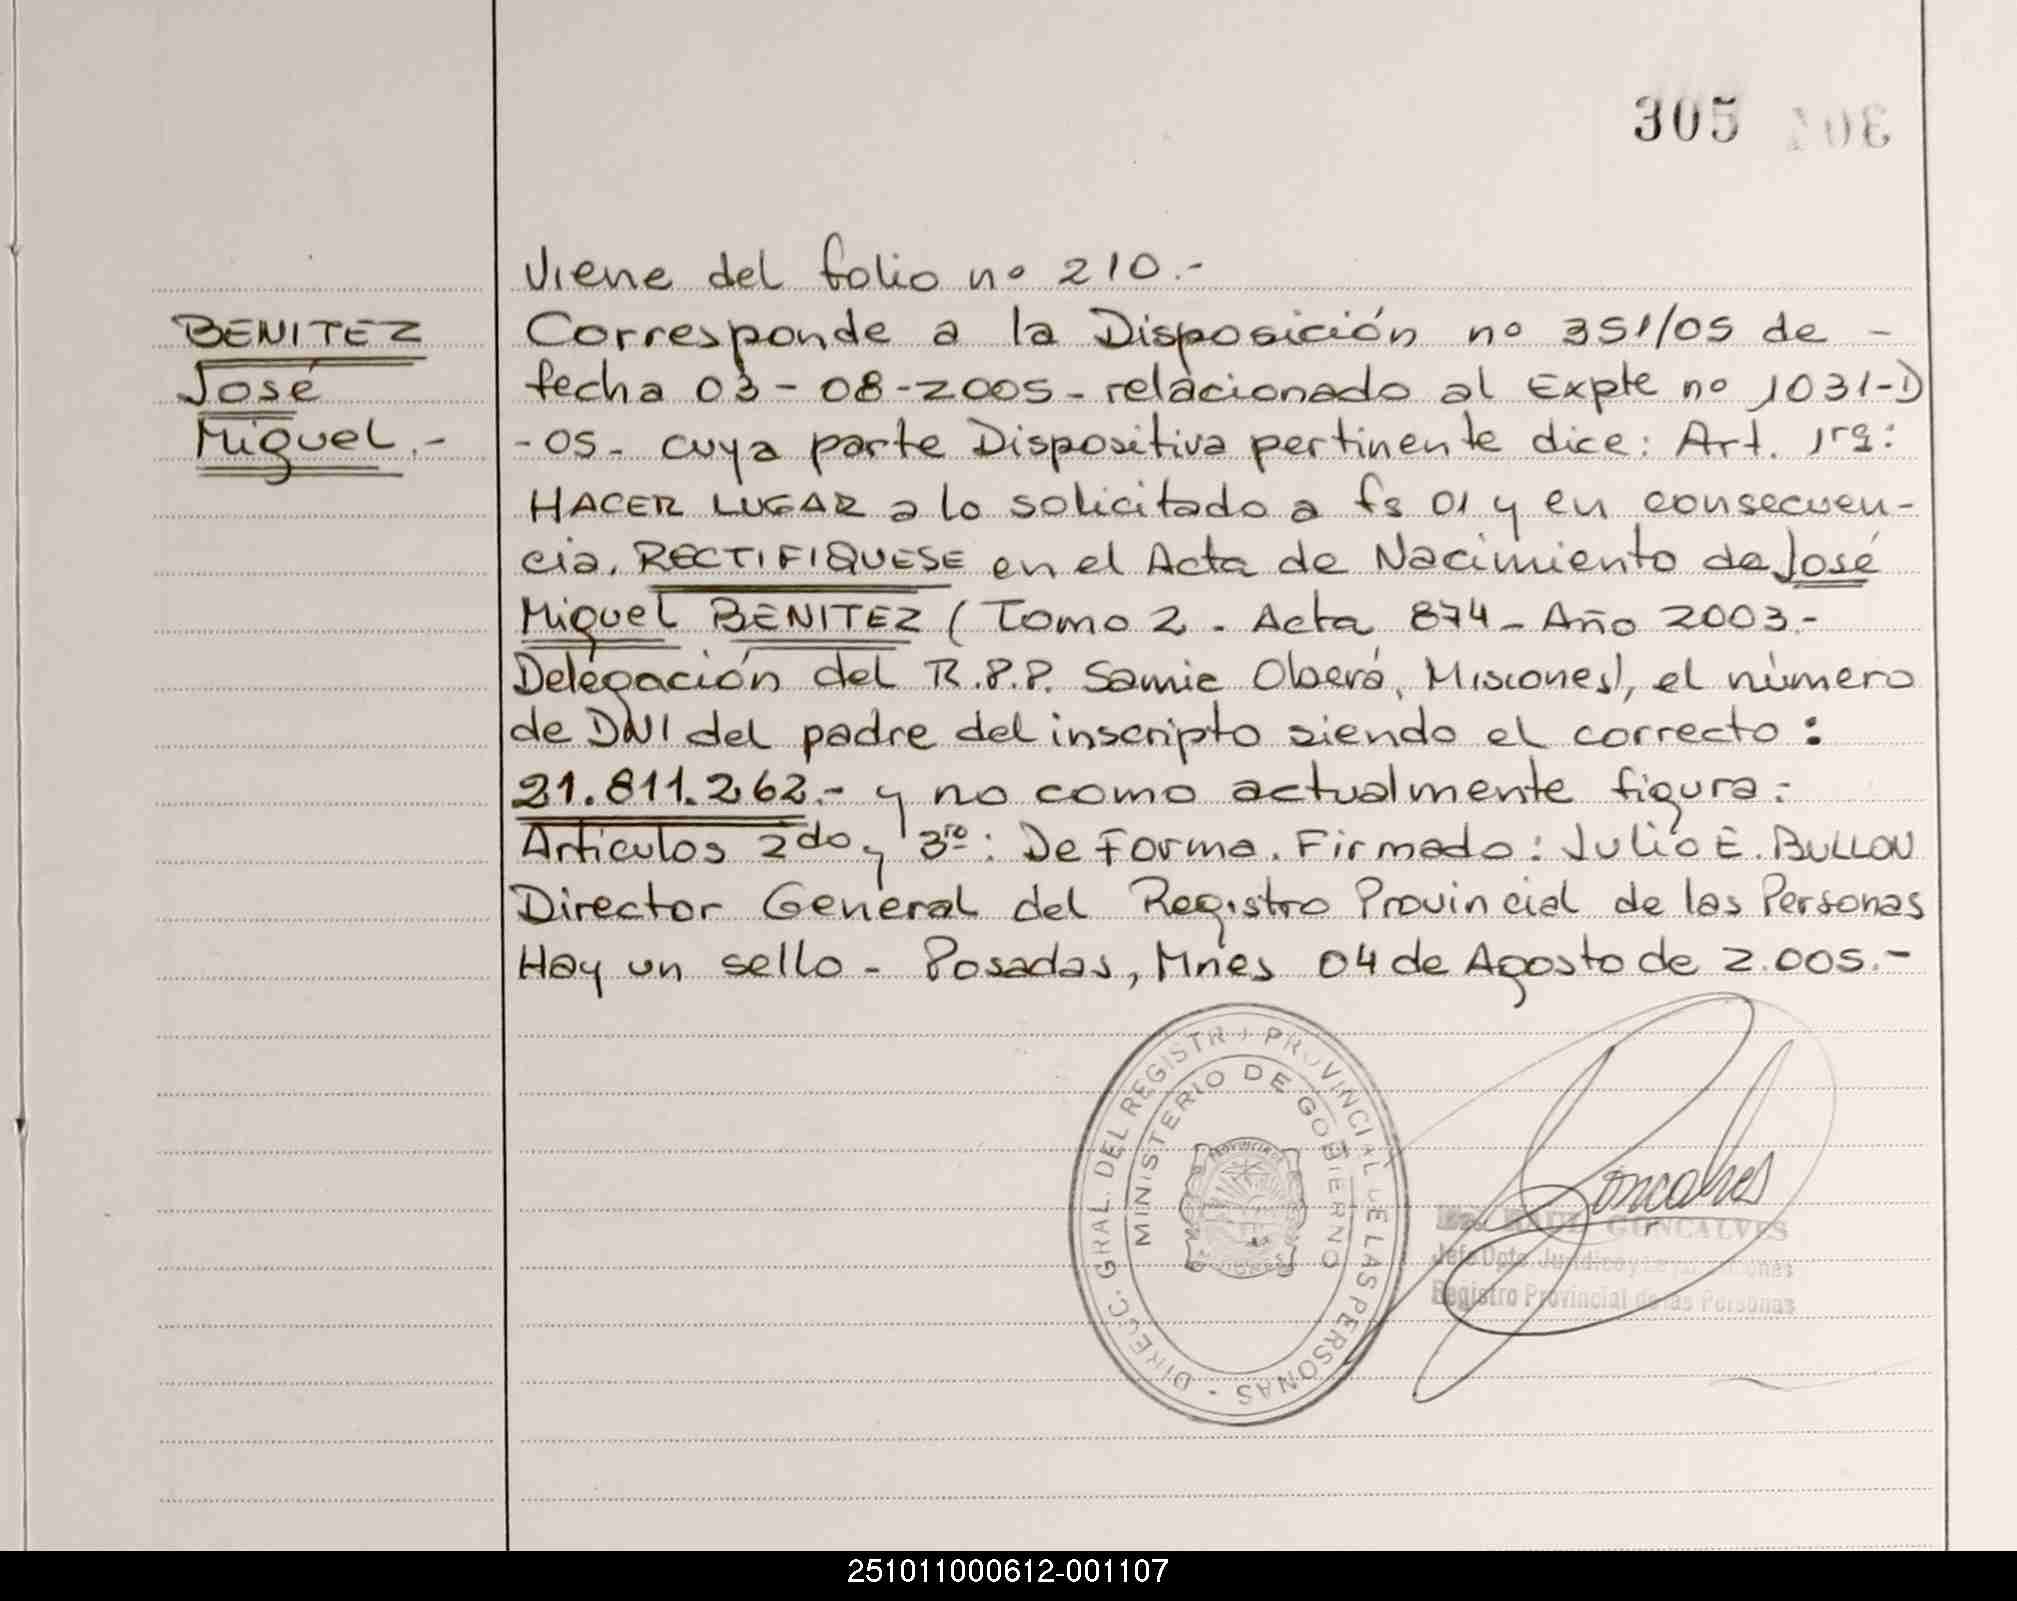 305
Viene del folio nº 210.-
BENITEZ
José
Miguel.-
Corresponde a la Disposición nº 351/05 de -
fecha 03-08-2005- relacionado al Expte nº 1031-D
-05- cuya parte Dispositiva pertinente dice: Art. 1rº:
HACER LUGAR a lo solicitado a fs 01 y en consecuen-
cia, RECTIFIQUESE en el Acta de Nacimiento de José
Miguel BENITEZ (Tomo 2. Acta 874- Año 2003.-
Delegación del R.P.P. Samic Oberá, Misiones), el número
de DNI del padre del inscripto siendo el correcto:
21.811.262.- y no como actualmente figura.-
Artículos 2do y 3ro: De Forma. Firmado: Julio E. BULLON
Director General del Registro Provincial de las Personas
Hay un sello - Posadas, Mnes 04 de Agosto de 2.005.-
DIRECC. GRAL. DEL REGISTRO PROVINCIAL DE LAS PERSONAS
MINISTERIO DE GOBIERNO
Goncalves
GONCALVES
Jefe Dpto. Jurídico y
Registro Provincial de las Personas
251011000612-001107